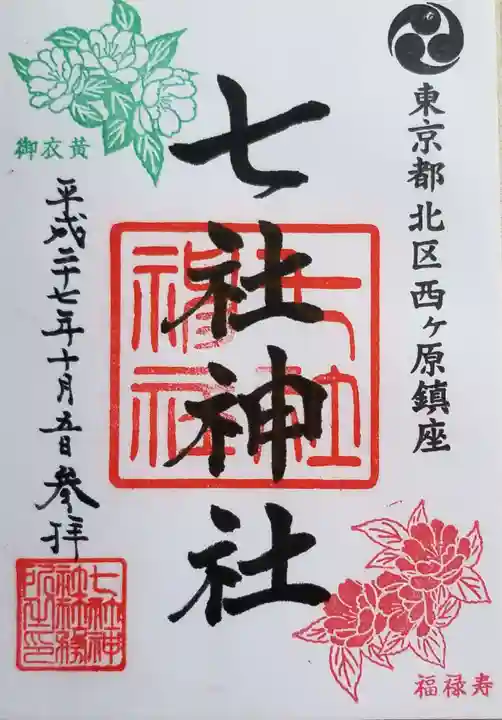 東京都北区西ヶ原鎮座
七社神社
七社神社
平成二十七年十月五日参拝
御衣黄
福禄寿
七社神社社務所之印